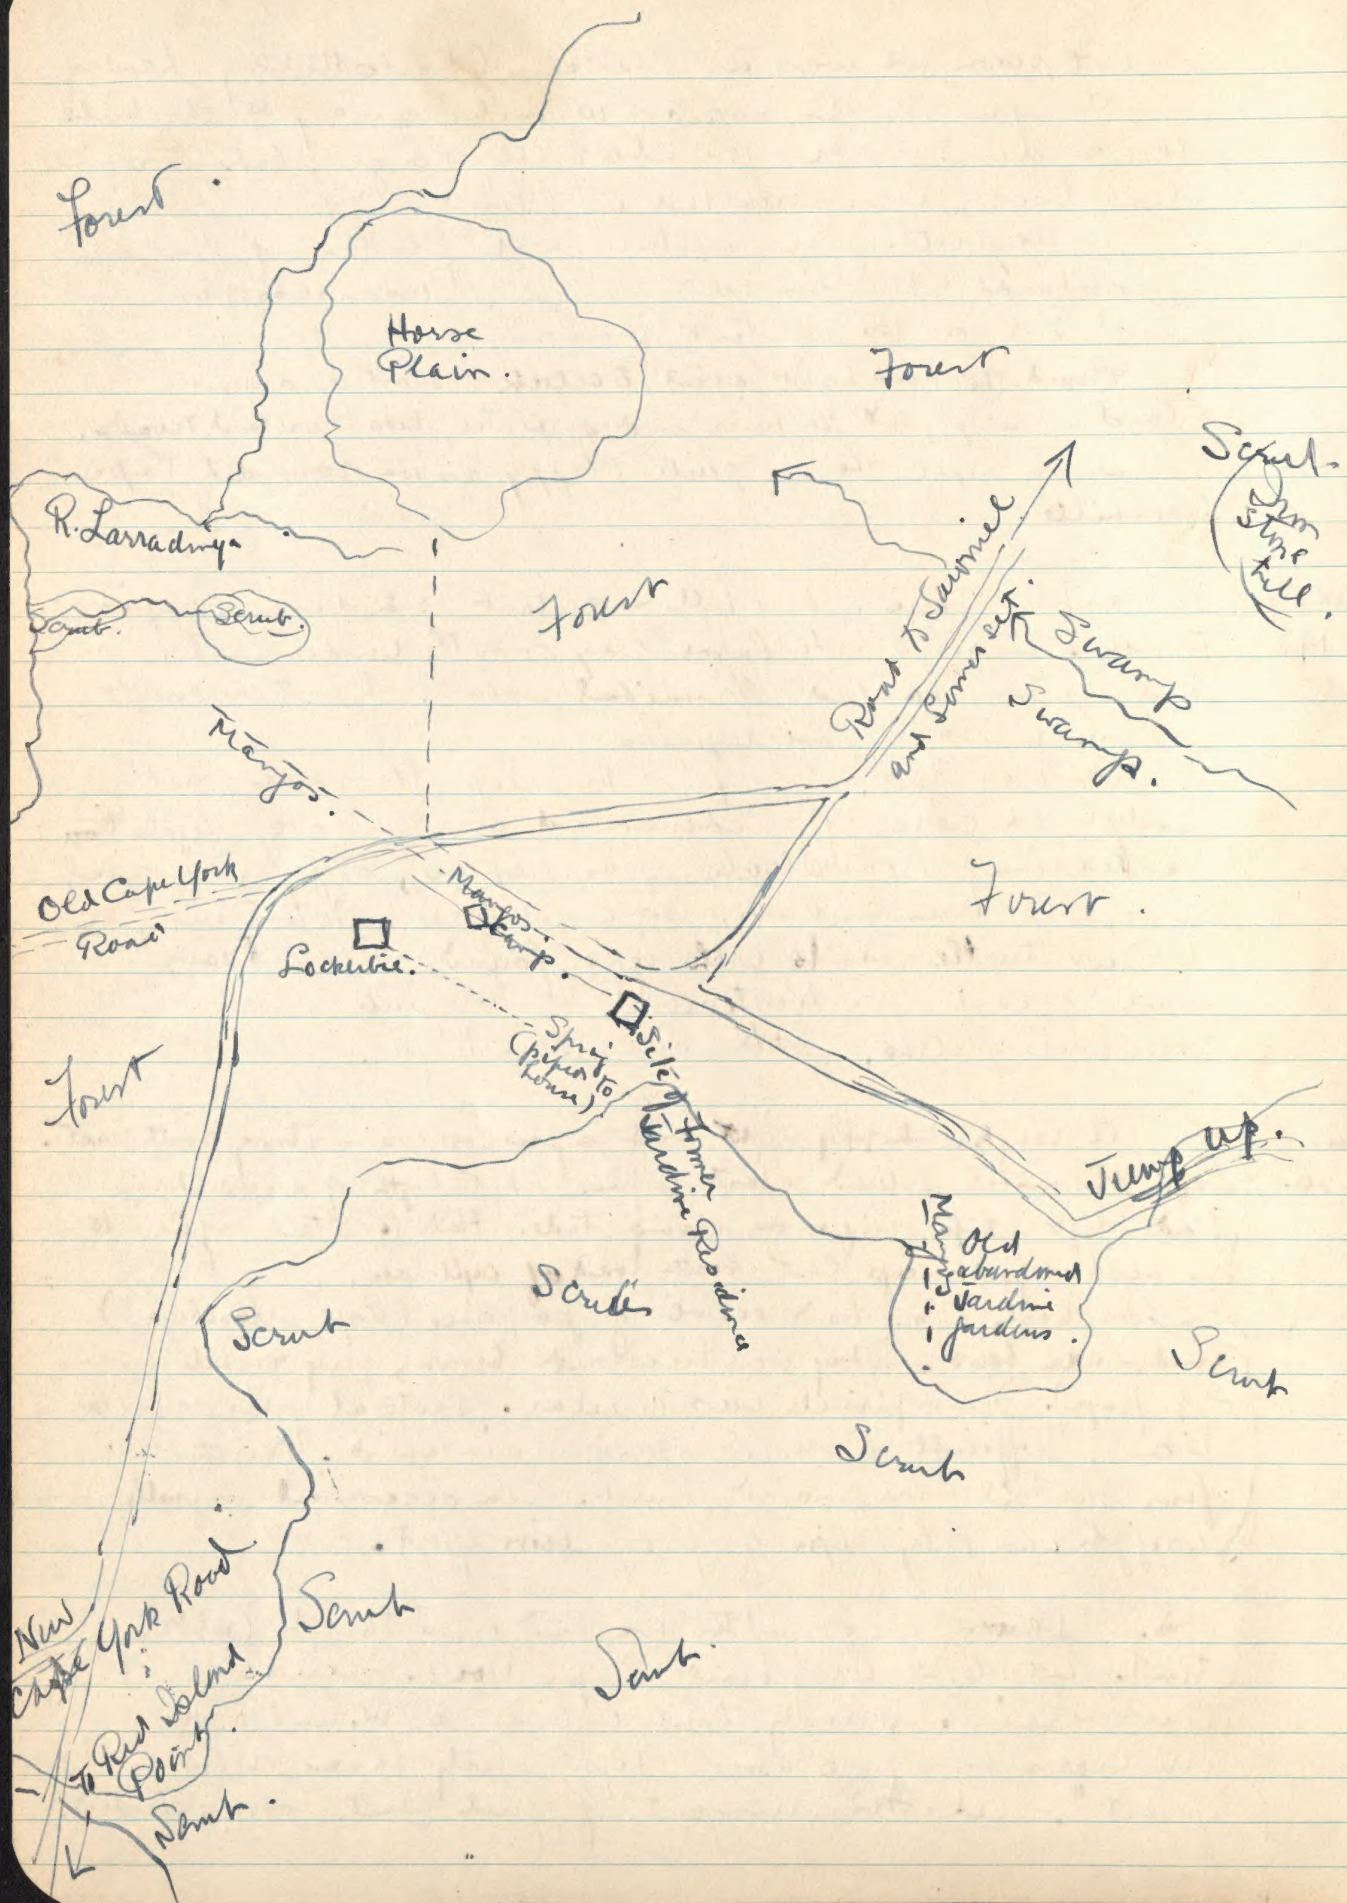 Forest
Horse
Plain.
Forest
Scrub.
Iron
Stone
Hill.
R. Larradinya
Scrub.
Scrub.
Forest
Road to Sawmill
and Somerset.
Swamp
Swamp.
Mangos.
Old Cape York
Road
Mangos.
Camp.
Lockerbie.
Forest.
Spring
(piped to
house)
Site of Former
Jardine Residence
Forest
Jump Up.
Mangos
Old
abandoned
Jardine
gardens.
Scrub
Scrub
Scrub
Scrub
New
Cape York Road
To Red Island
Point
Scrub
Scrub.
Scrub.